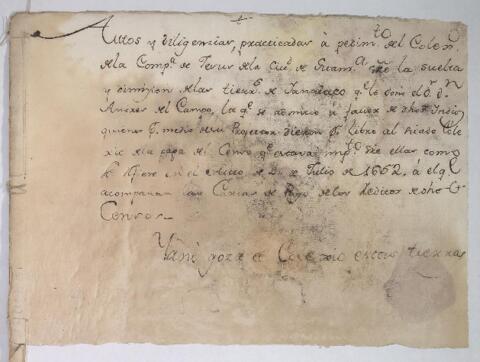 Autos y diligencias, practicadas à pedim.to del Coleg.
de la Comp.a de Jesus de la Ciu.d de Guam.a sre la suelta
y dimision de las tierras de q.e le dono el D.r D.n
Andres del Campo, la q.e se admitio à favor de dhos Indios
quienes p.r medio de su Protector dieron p.r libre al dicho Cole
xio de la paga del Censo q.e estava impto. sre ellas como
se refiere en el escrito de 2 de Julio de 1662. à el q.l
acompañan las Cartas de Pago de los Reditos de dho
Censos.
Ya ni goza el Colexio estas tierras